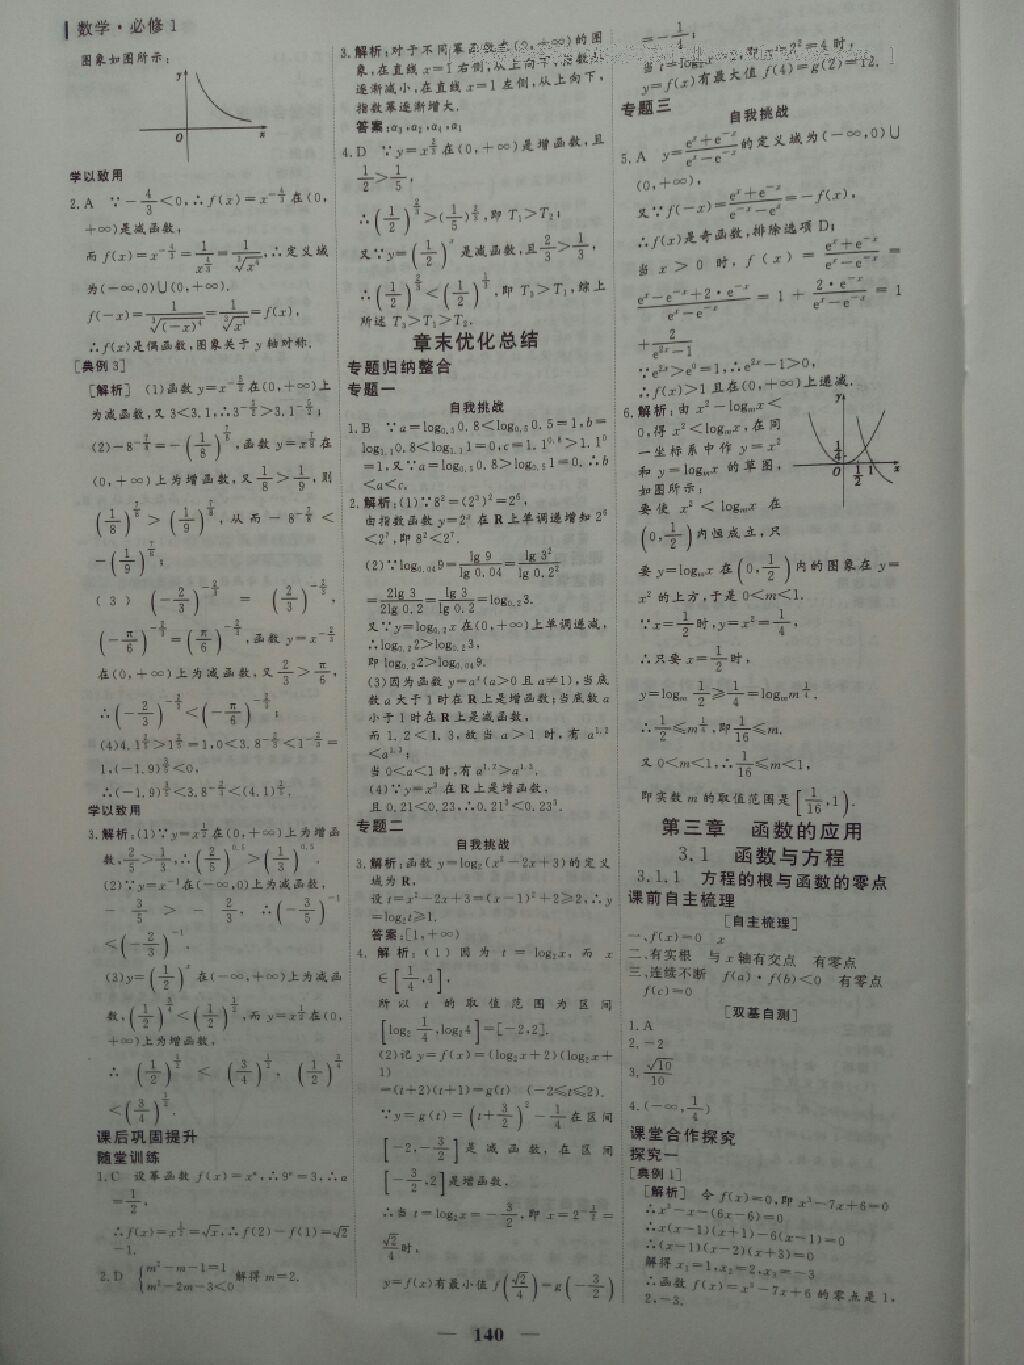 数学·必修1
图象如图所示:
y
O
x
学以致用
2. A ∵-4/3<0,∴f(x)=x^{-4/3}在(0,
+∞)是减函数,
而f(x)=x^{-4/3}=1/x^{4/3}=1/∛(x⁴),∴定义域
为(-∞,0)∪(0,+∞).
f(-x)=1/∛((-x)⁴)=1/∛(x⁴)=f(x),
∴f(x)是偶函数,图象关于y轴对称.
[典例3]
[解析] (1)函数y=x^{-5/2}在(0,+∞)上
为减函数,又3<3.1,∴3^{-5/2}>3.1^{-5/2};
(2)-8^{-7/8}=-(1/8)^{7/8},函数y=x^{7/8}在
(0,+∞)上为增函数,又1/8>1/9,则
(1/8)^{7/8}>(1/9)^{7/8},从而-8^{-7/8}<
-(1/9)^{7/8};
(3)(-2/3)^{-2/3}=(2/3)^{-2/3},
(-π/6)^{-2/3}=(π/6)^{-2/3},函数y=x^{-2/3}
在(0,+∞)上为减函数,又2/3>π/6,
∴(-2/3)^{-2/3}<(-π/6)^{-2/3};
(4)4.1^{2/5}>1^{2/5}=1,0<3.8^{-2/3}<1^{-2/3}=
1,(-1.9)^{3/5}<0,
∴(-1.9)^{3/5}<3.8^{-2/3}<(4.1)^{2/5}.
学以致用
3. 解析:(1)∵y=x^{1/2}在(0,+∞)上为增函
数,2/5>1/3,∴(2/5)^{0.5}>(1/3)^{0.5}.
(2)∵y=x^{-1}在(-∞,0)上为减函数,
-3/5>-2/3,∴(-3/5)^{-1}
<(-2/3)^{-1}.
(3)y=(1/2)^x在(-∞,+∞)上为减函
数,(1/2)^{3/4}<(1/2)^{1/2},而y=x^{1/2}在(0,
+∞)上为增函数,
∴(1/2)^{1/2}<(3/4)^{1/2},(1/2)^{3/4}
<(3/4)^{1/2}.
课后巩固提升
随堂训练
1. C 设幂函数f(x)=x^α,∴9^α=3,∴α
=1/2,
∴f(x)=x^{1/2}=√x,∴f(2)-f(1)=√2
-1.
2. D {m²-m-1=1
m²-2m-3<0 解得m=2.
3. 解析:对于不同幂函数在(0,+∞)的图
象,在直线x=1右侧,从上向下,指数
逐渐减小,在直线x=1左侧,从上向下,
指数幂逐渐增大.
4. D ∵y=x^{2/3}在(0,+∞)是增函数,且
1/2>1/5,
∴(1/2)^{2/3}>(1/5)^{2/3},即T₁>T₂;
又∵y=(1/2)^x是减函数,且2/3>1/3,
∴(1/2)^{2/3}<(1/2)^{1/3},即T₃>T₁,综上
所述T₃>T₁>T₂.
章末优化总结
专题归纳整合
专题一
自我挑战
1. B ∵a=log₀.₅0.8<log₀.₅0.5=1,b=
log₁.₁0.8<log₁.₁1=0,c=1.1^{0.8}>1.1⁰
=1,又∵a=log₀.₅0.8>log₀.₅1=0.∴b
<a<c.
2. 解析:(1)∵8²=(2³)²=2⁶,
由指数函数y=2^x在R上单调递增知2⁶
<2⁷,即8²<2⁷.
(2)∵log₀.₀₄9=lg 9/lg 0.04=lg 3²/lg 0.2²
=2lg 3/2lg 0.2=lg 3/lg 0.2=log₀.₂3.
又∵y=log₀.₂x在(0,+∞)上单调递减,
∴log₀.₂2>log₀.₂3,
即log₀.₂2>log₀.₀₄9.
(3)因为函数y=a^x(a>0且a≠1),当底
数a大于1时在R上是增函数;当底数a
小于1时在R上是减函数,
而1.2<1.3,故当a>1时,有a^{1.2}
<a^{1.3};
当0<a<1时,有a^{1.2}>a^{1.3}.
(4)∵y=x³在R上是增函数,
且0.21<0.23,∴0.21³<0.23³.
专题二
自我挑战
3. 解析:函数y=log₂(x²-2x+3)的定义
域为R,
设t=x²-2x+3=(x-1)²+2≥2,∴y
=log₂t≥1.
答案:[1,+∞)
4. 解析:(1)因为t=log₂x,而x
∈[1/4,4],
所以t的取值范围为区间
[log₂1/4,log₂4]=[-2,2].
(2)记y=f(x)=(log₂x+2)(log₂x+
1)
=(t+2)(t+1)=g(t) (-2≤t≤2).
∵y=g(t)=(t+3/2)²-1/4在区间
[-2,-3/2]是减函数,在区间
[-3/2,2]是增函数,
∴当t=log₂x=-3/2,即x=2^{-3/2}=
√2/4时,
y=f(x)有最小值f(√2/4)=g(-3/2)
=-1/4;
当t=log₂x=2,即x=2²=4时,
y=f(x)有最大值f(4)=g(2)=12.
专题三
自我挑战
5. A y=(e^x+e^{-x})/(e^x-e^{-x})的定义域为(-∞,0)∪
(0,+∞),
又∵f(-x)=(e^x+e^{-x})/(e^{-x}-e^x)=-f(x),
∴f(x)是奇函数,排除选项D;
当x>0时,f(x)=(e^x+e^{-x})/(e^x-e^{-x})=
(e^x-e^{-x}+2·e^{-x})/(e^x-e^{-x})=1+2·e^{-x}/(e^x-e^{-x})=1
+2/(e^{2x}-1)
∵e^{2x}>e⁰=1,∴e^{2x}-1>0,
∴f(x)>1且在(0,+∞)上递减.
6. 解析:由x²-logₘx<
0,得x²<logₘx,在同
一坐标系中作y=x²
和y=logₘx的草图,
如图所示:
y
1/4
O
1/2
1
x
要使x²<logₘx在
(0,1/2)内恒成立,只
要y=logₘx在(0,1/2)内的图象在y=
x²的上方,于是0<m<1.
∵x=1/2时,y=x²=1/4,
∴只要x=1/2时,
y=logₘ1/2≥1/4=logₘm^{1/4},
∴1/2≤m^{1/4},即1/16≤m.
又0<m<1,∴1/16≤m<1,
即实数m的取值范围是[1/16,1).
第三章 函数的应用
3.1 函数与方程
3.1.1 方程的根与函数的零点
课前自主梳理
[自主梳理]
一、f(x)=0 x
二、有实根 与x轴有交点 有零点
三、连续不断 f(a)·f(b)<0 有零点
f(c)=0
[双基自测]
1. A
2. -2
3. √10/10
4. (-∞,1/4)
课堂合作探究
探究一
[典例1]
[解析] 令f(x)=0,即x³-7x+6=0
∴x³-x-(6x-6)=0
∴x(x-1)(x+1)-6(x-1)=0
∴(x-1)(x-2)(x+3)=0
解得x₁=1,x₂=2,x₃=-3
∴函数f(x)=x³-7x+6的零点是1,
2,-3.
— 140 —